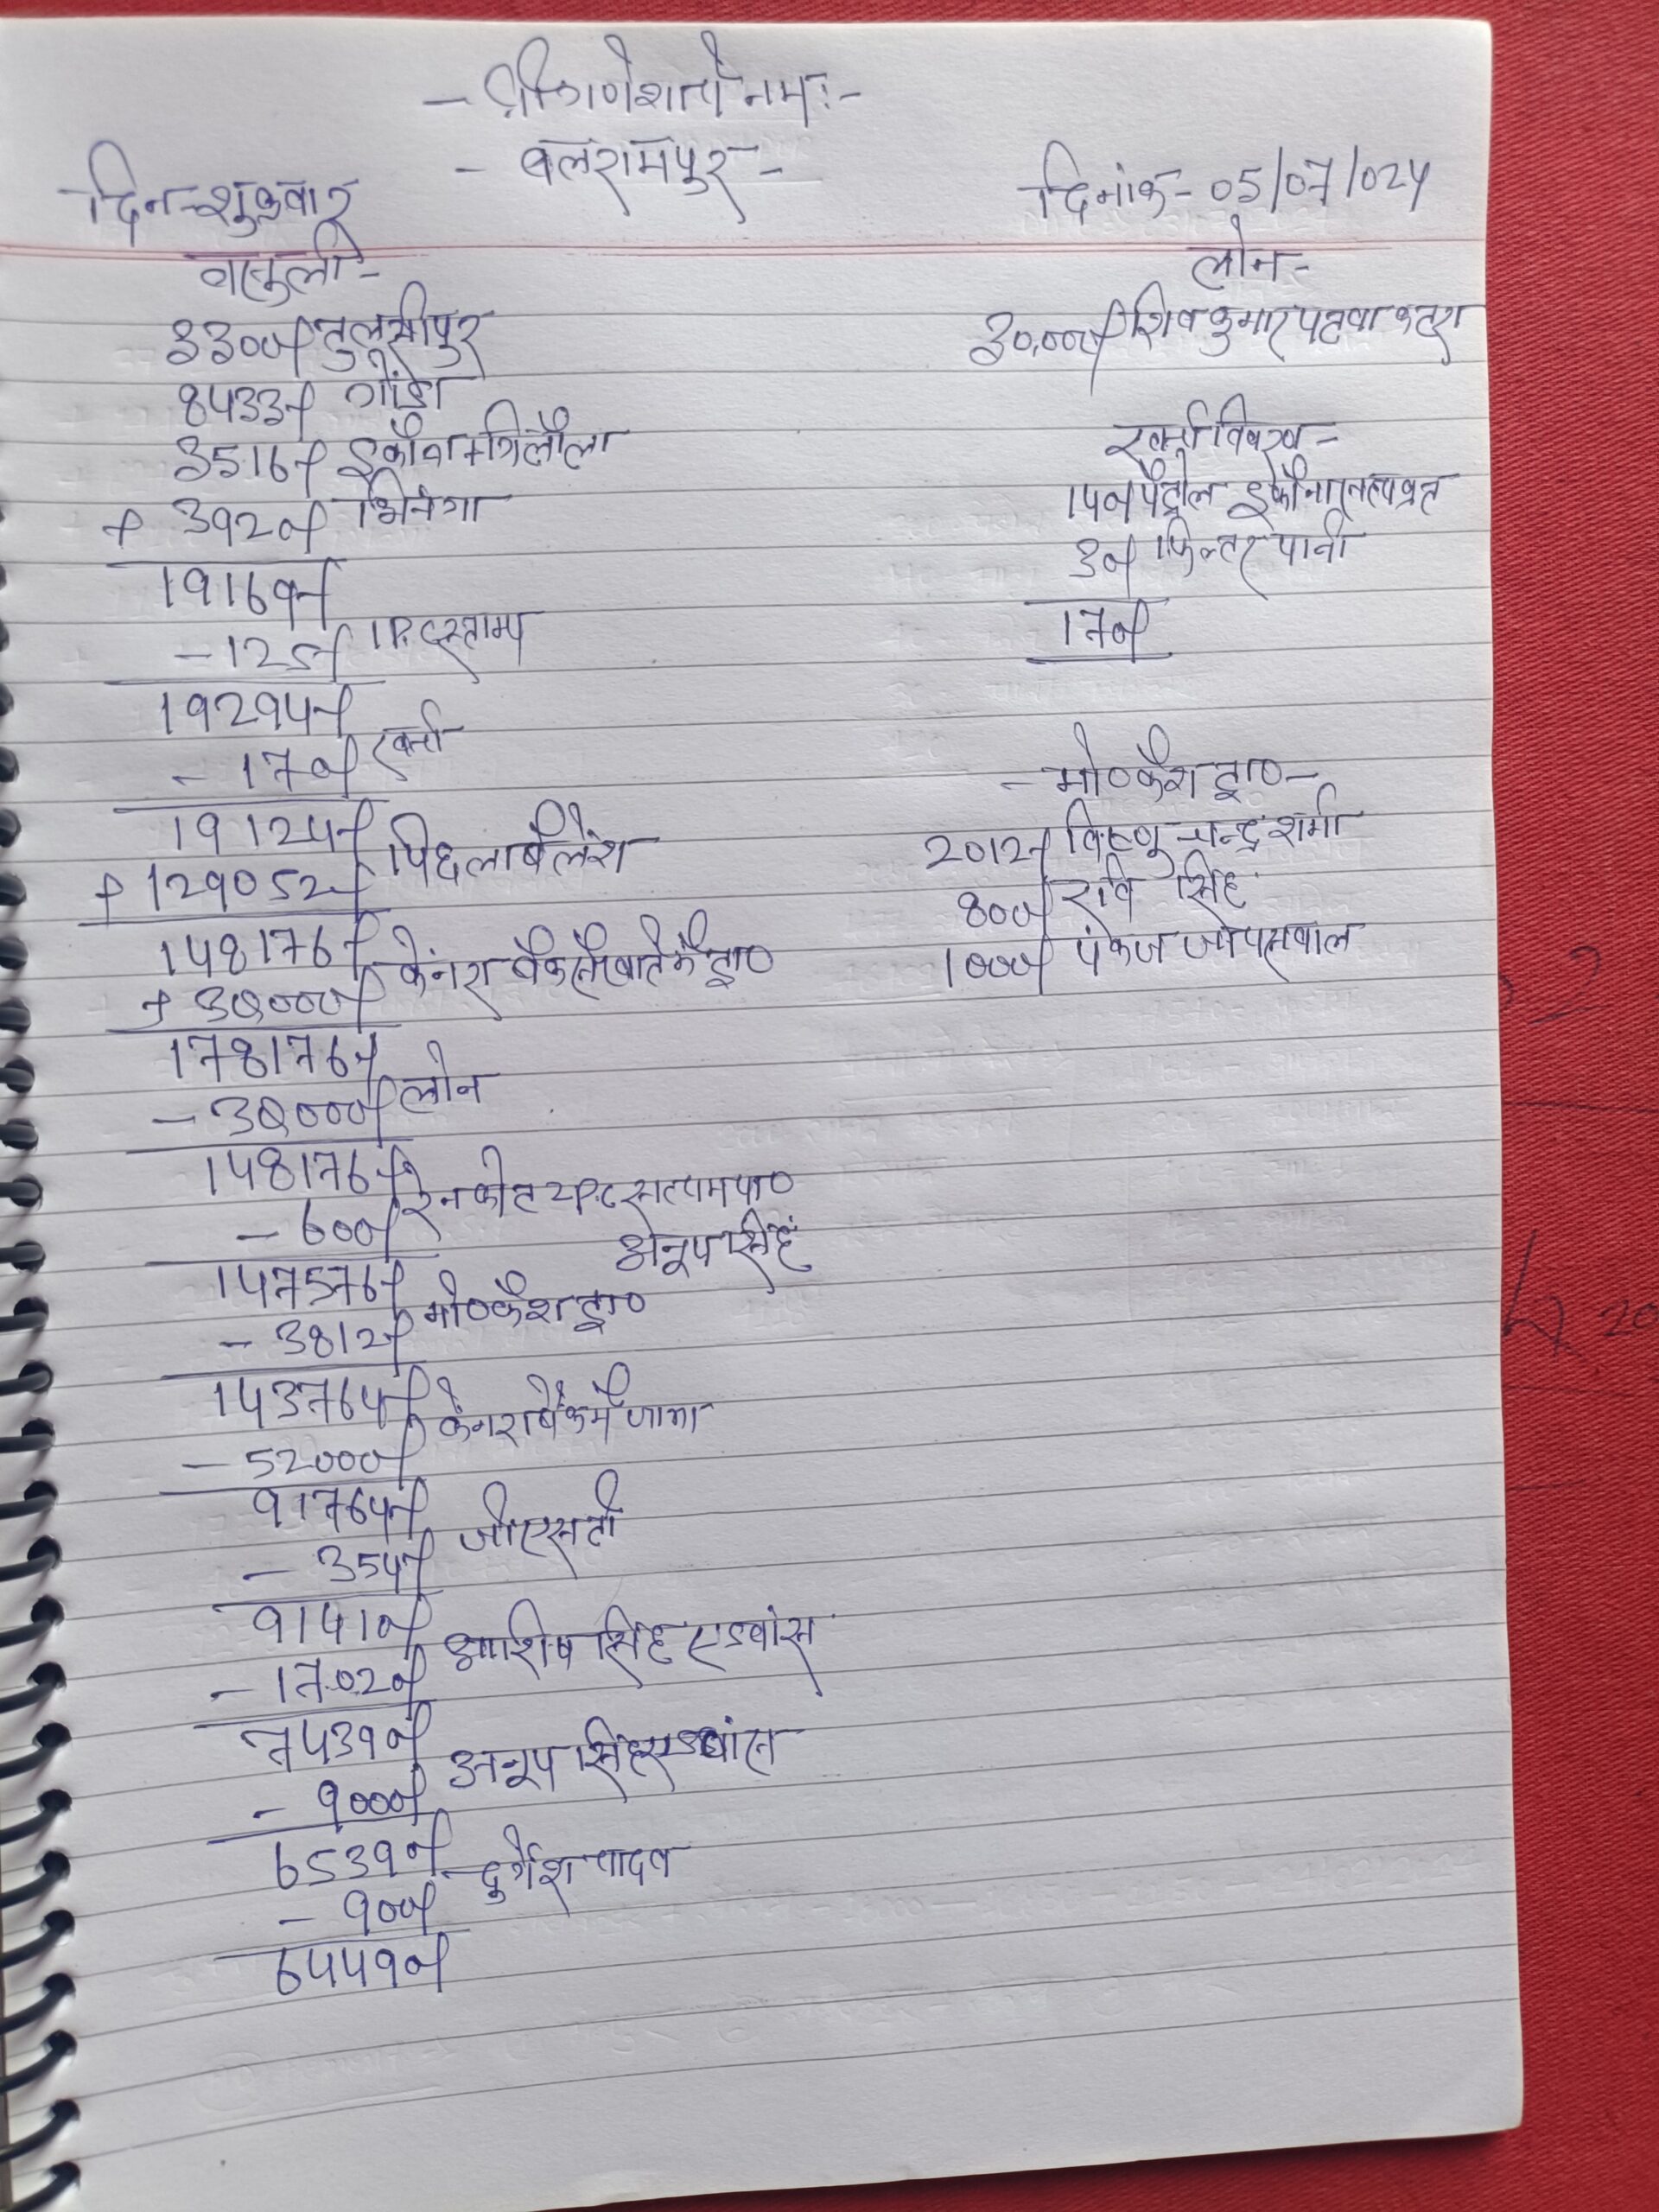 - श्री गणेशाय नमः -
- बलरामपुर -
दिन - शुक्रवार
दिनांक - 05/07/024
वसुली -
3300/ तुलसीपुर
8433/ गोंडा
3516/ इकौना + गिलौला
+ 3920/ भिनगा
19169/
- 125/ 1 P.C स्टाम्प
19294/
- 170/ खर्चा
19124/
+ 129052/ पिछला बैलेंश
148176/
+ 30,000/ केनरा बैंक से खाते से द्वा०
178176/
- 30,000/ लोन
148176/
- 600/ रेनकोट 2 P.C सत्यम पा०
अनूप सिंह
147576/
- 3812/ मो० कैश द्वा०
143764/
- 52000/ केनरा बैंक में जमा
91764/
- 354/ जीएसटी
91410/
- 17020/ आशिष सिंह एडवांस
74390/
- 9000/ अनूप सिंह एडवांस
65390/
- 900/ दुर्गेश यादव
64490/
लोन -
30,000/ शिव कुमार पटवा कटरा
खर्चा विवरण -
140/ पैट्रोल इकौना
30/ फिल्टर पानी
170/
- मो० कैश द्वा० -
2012/ विष्णु चन्द्र शर्मा
800/ रवि सिंह
1000/ पंकज जायसवाल